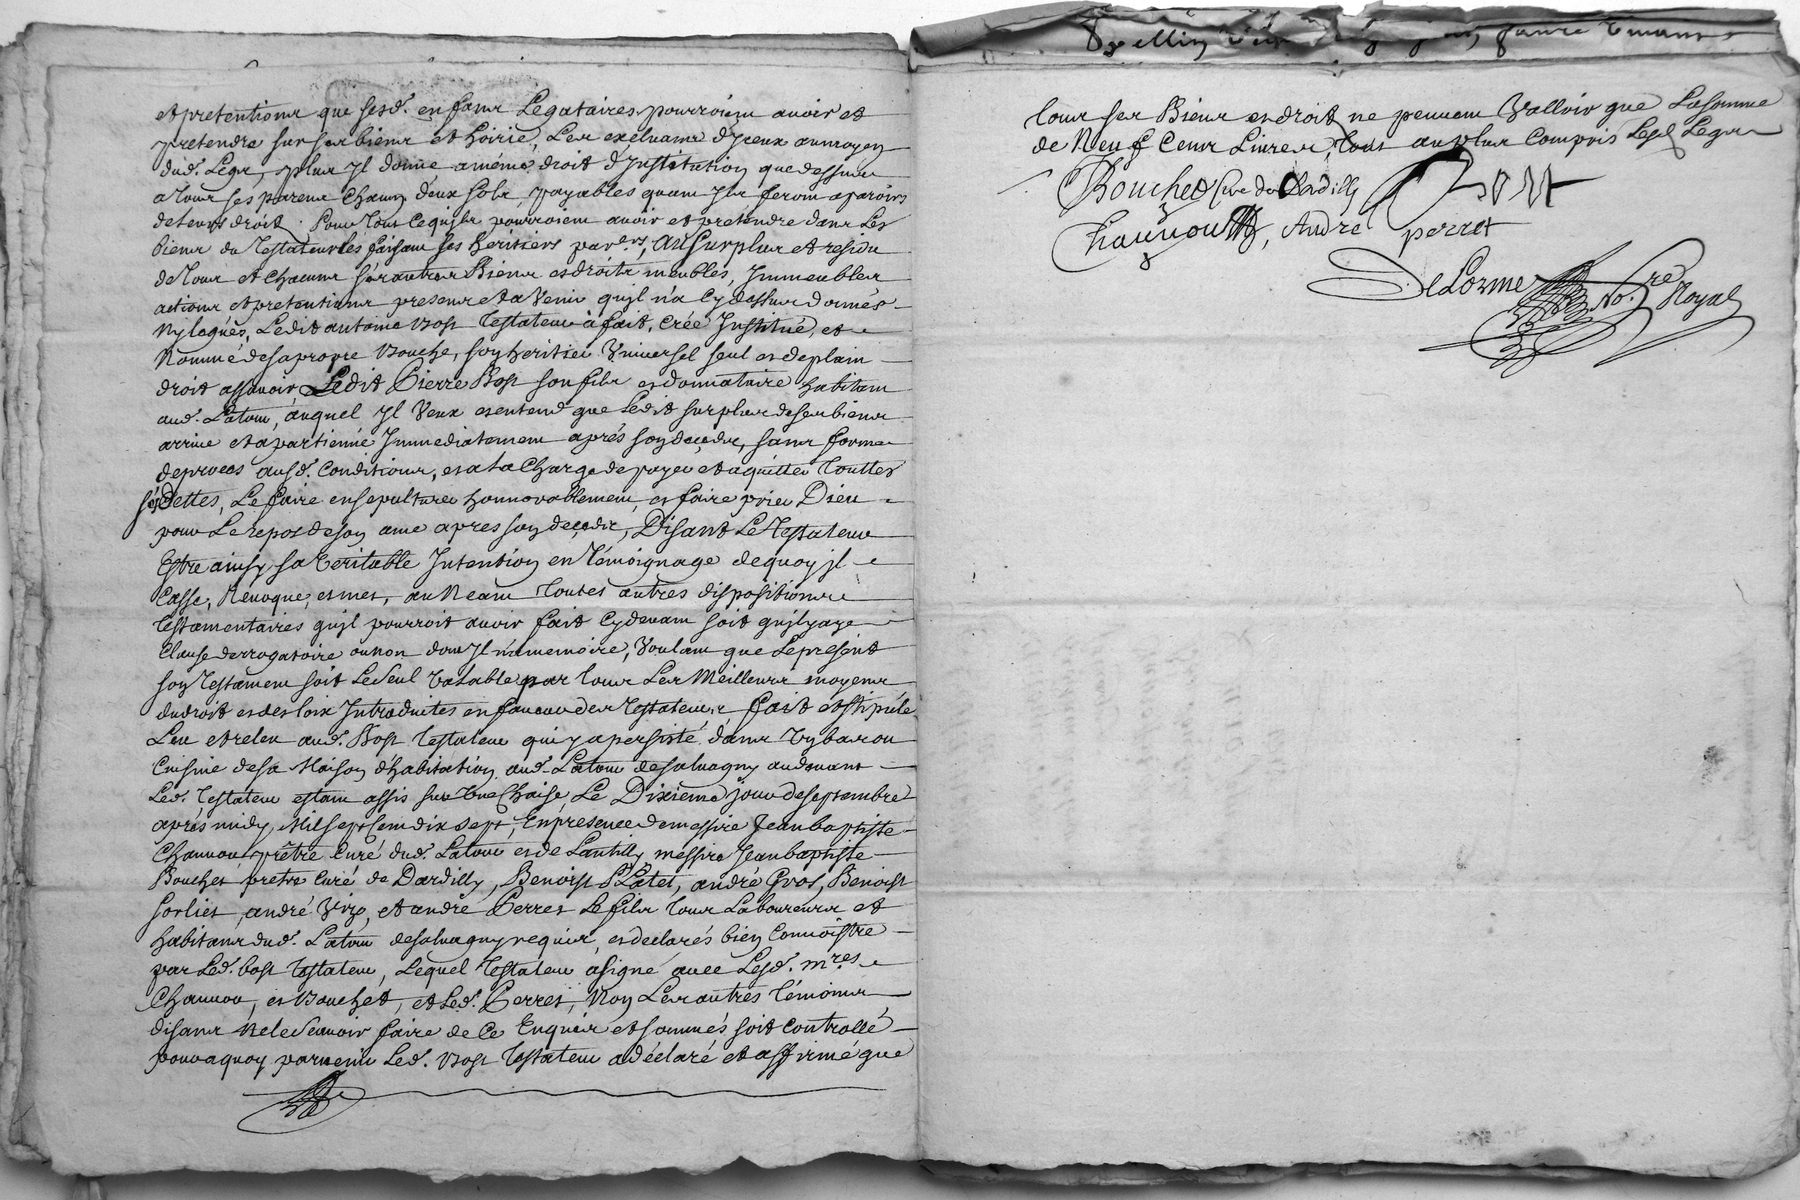 et pretentions que sesd. enfans Legataires pourroient avoir et
pretendre sur ses biens et hoirie, Les excluans d'Jceux aumoyen
dud. Legs, plus Jl donne amême droit d'Justitution que dessus
a tous ses parens chacun deux sols, payables quant Jls feront aparoir
de leurs droits. Pour tout ce quils pourroient avoir et pretendre dans Les
biens du Testateur les faisant ses heritiers par.ers, Au surplus et residu
de tous et chacuns ses autres Biens et droits meubles, Jmmeubles
actions et pretentions presens et a Venir qu'jl n'a Cy dessus donnés
ny legués, Ledit antoine Bost Testateur à fait, Crée Justitué, et
Nommé de sa propre bouche, son heritier Vniversel seul et de plain
droit assavoir Ledit Pierre Bost son fils et donnataire habitant
aud. Latour, auquel Jl Veux et entend que Ledit surplus de ses biens
arrive et apartienne Jmmediatement aprés son decedz, sans forme
de procés ausd. Conditions, et a la Charge de payer et aquitter touttes
ses Dettes, Le faire ensepulturer honnorablement, et faire prier Dieu
pour Le repos de son ame apres son decedz, Disant Le Testateur
Estre ainsy sa Veritable Jntention en témoignage dequoy jl
Casse, Revoque, et met, au Neant toutes autres dispositions
testamentaires qu'jl pourroit avoir fait Cydevant soit qu'jl y aye
Clause derrogatoire ou non dont Jl n'a memoire, Voulant que Le present
son Testament soit Le seul Valable par tous Les Meilleurs moyens
du droit et des loix Jntroduites en faveur des Testateurs fait et stipulé
Leu et releu aud. Bost testateur qui y a persisté dans
Cuisine de sa Maison d'habitation aud. Latour de salvagny audevant
Led. Testateur estant assis sur Vne Chaise, Le Dixieme jour de septembre
aprés midy, Mil sept Cens dix sept, En presence de messire Jean baptiste
Chauvou prêtre Curé dud. Latour et de Lantilly, messire Jean baptiste
Bouchet pretre Curé de Dardilly, Benoist Platet, andré Gros, Benoist
Sorliet, andré, et andré Perret Le fils tous Laboureurs et
habitans dud. Latour de salvagny requis, et declarés bien Connoistre
par Led. bost Testateur, Lequel Testateur a signé avec Lesd. m.res
Chauvou, et Bouchet, et Led. Perret, Non Les autres témoins
disans Ne le sçavoir faire de Ce Enquis et sommés soit controllé
pour aquoy parvenir Led. Bost Testateur a déclaré et affirmé que
tous ses Biens et droits ne peuvent Valloir que La somme
de Neuf Cens Livres, tout au plus Compris Lesd Legs
Bouchet Curé de Dardilly Bost
Chauvou, André perret
Delorme No.re Royal